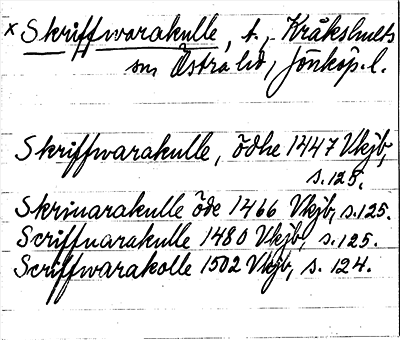 x Skriffwarakulle, t., Kråkshults
sn Östra hd, Jönköp. l.
Skriffwarakulle, ödhe 1447 Vkjb,
s. 125.
Skrinarakulle öde 1466 Vkjb, s. 125.
Scriffuarakulle 1480 Vkjb, s. 125.
Scriffwarakolle 1502 Vkjb, s. 124.